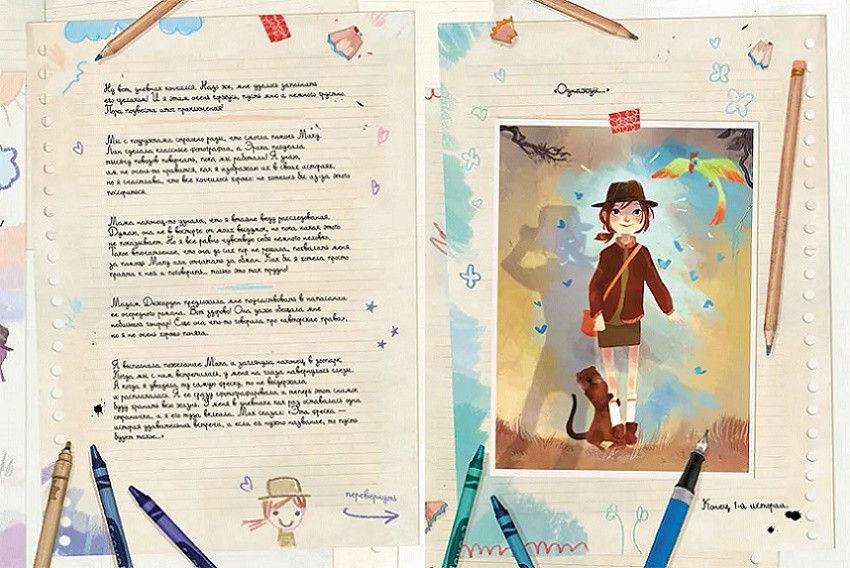 Ну вот, дневник кончился. Надо же, мне удалось заполнить
его целиком! И я этим очень горжусь, пусть мне и немного грустно.
Пора подвести итог приключения!
Мы с подружками страшно рады, что смогли помочь Мишу.
Лин сделала классные фотографии, а Эрика придумала
тысячу поводов поворчать, пока мы работали! Я знаю,
им не очень-то нравится, как я изображаю их в своих историях,
но я счастлива, что все кончилось хорошо: не хотелось бы из-за этого
поссориться.
Мама наконец-то узнала, что я втайне веду расследования.
Думаю, она не в восторге от моих выдумок, но пока никак этого
не показывает. Но я все равно чувствую себя немного неловко.
Такое впечатление, что она до сих пор не решила, похвалить меня
за помощь Мишу или отчитать за обман. Как бы я хотела просто
прийти к ней и поговорить... только это так трудно!
Мадам Дежарден предложила мне поучаствовать в написании
ее очередного романа. Вот здорово! Она даже обещала мне
небольшой гонорар! Еще она что-то говорила про «авторские права»,
но я не очень хорошо поняла.
Я выполнила пожелание Мишу и заглянула наконец в зоопарк.
Когда мы с ним встретились, у меня на глаза навернулись слезы.
А когда я увидела ту самую фреску, то не выдержала
и расплакалась. Я ее сразу сфотографировала и теперь этот снимок
буду хранить всю жизнь. У меня в дневнике как раз оставалась одна
страничка, и я его туда вклеила. Миш сказал: «Эта фреска —
история удивительной встречи, и если ей нужно название, то пусть
будет такое...»
перевернуть
«Однажды...»
Конец 1-й истории.